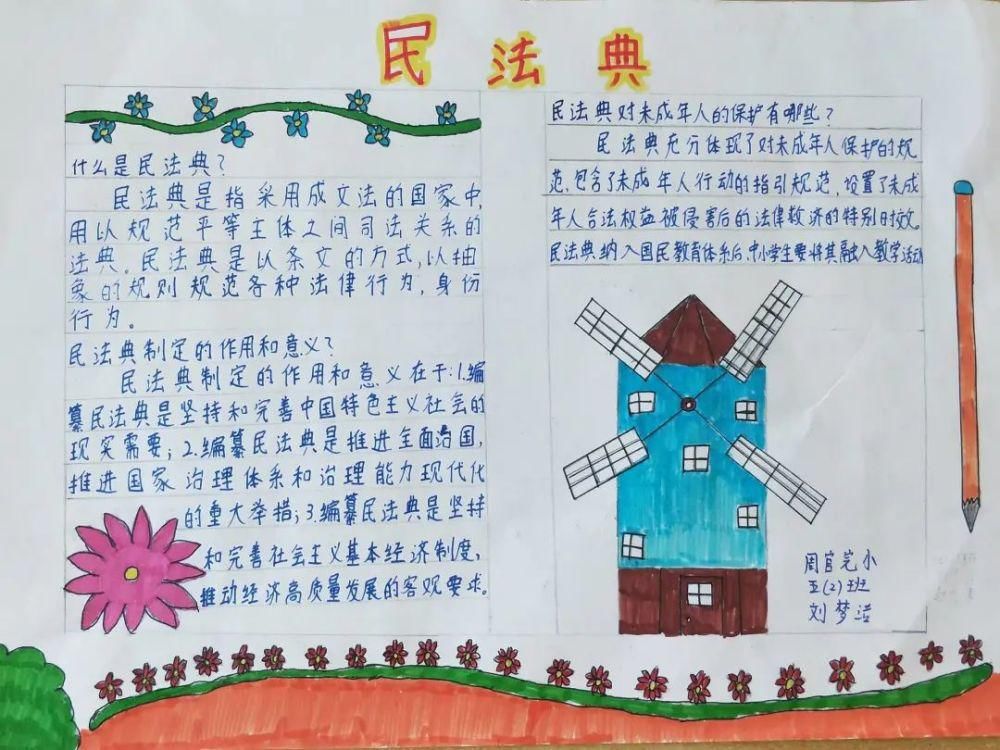 民法典
什么是民法典?
民法典是指采用成文法的国家中,
用以规范平等主体之间司法关系的
法典。民法典是以条文的方式,以抽
象的规则规范各种法律行为,身份
行为。
民法典制定的作用和意义?
民法典制定的作用和意义在于:1.编
纂民法典是坚持和完善中国特色主义社会的
现实需要;2.编纂民法典是推进全面治国,
推进国家治理体系和治理能力现代化
的重大举措;3.编纂民法典是坚持
和完善社会主义基本经济制度,
推动经济高质量发展的客观要求。
民法典对未成年人的保护有哪些?
民法典充分体现了对未成年人保护的规
范,包含了未成年人行动的指引规范,设置了未成
年人合法权益被侵害后的法律救济的特别时效。
民法典纳入国民教育体系后、中小学生要将其融入教学活动
周官屯小
五(2)班
刘梦